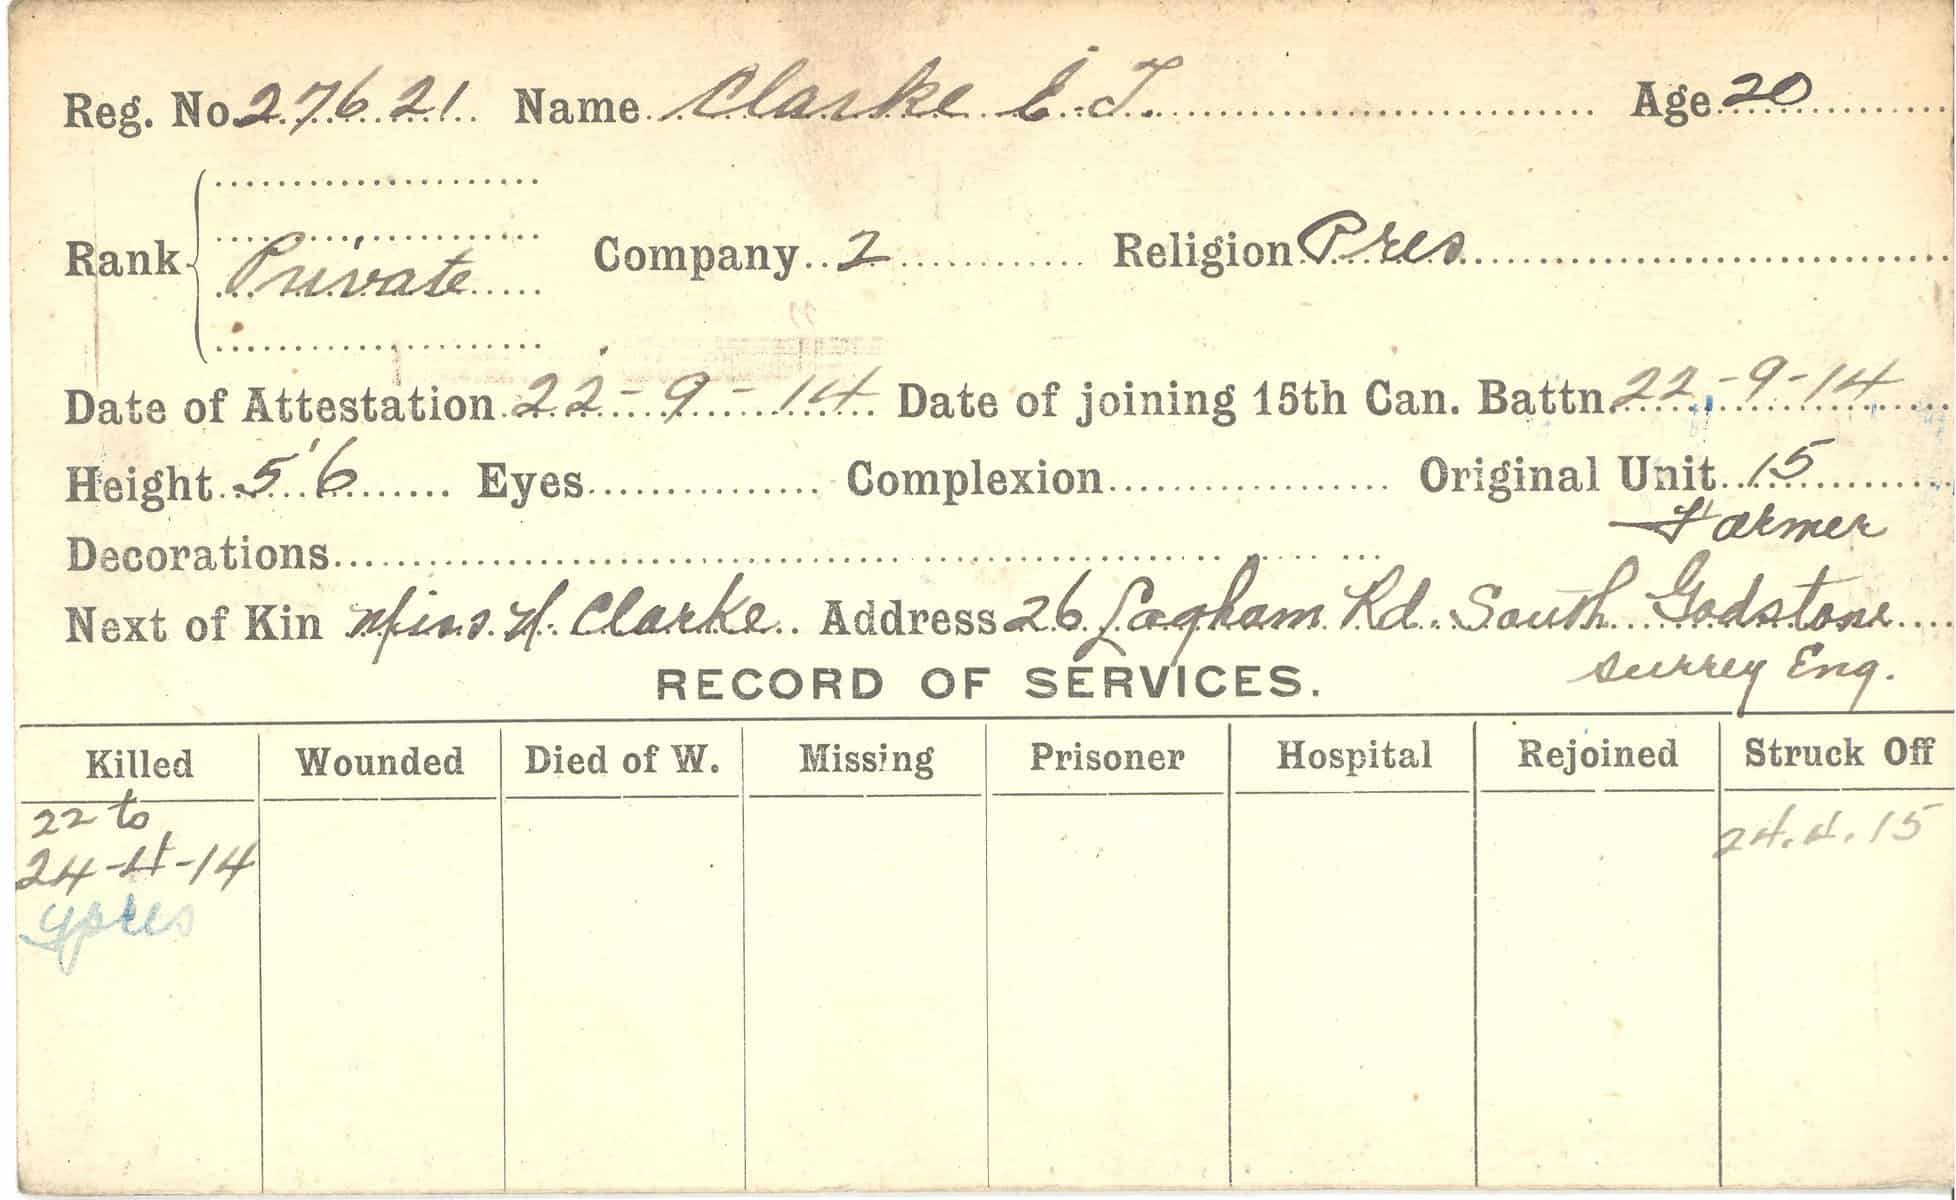 Reg. No. 27621 Name Clarke E. T. Age 20
Rank Private Company 2 Religion Pres
Date of Attestation 22-9-14 Date of joining 15th Can. Battn. 22-9-14
Height 5'6 Eyes Complexion Original Unit 15
Farmer
Decorations
Next of Kin Miss. N. Clarke Address 26 Lagham Rd. South Godstone
Surrey Eng.
RECORD OF SERVICES.
Killed Wounded Died of W. Missing Prisoner Hospital Rejoined Struck Off
22 to
24-4-14 24.4.15
Ypres